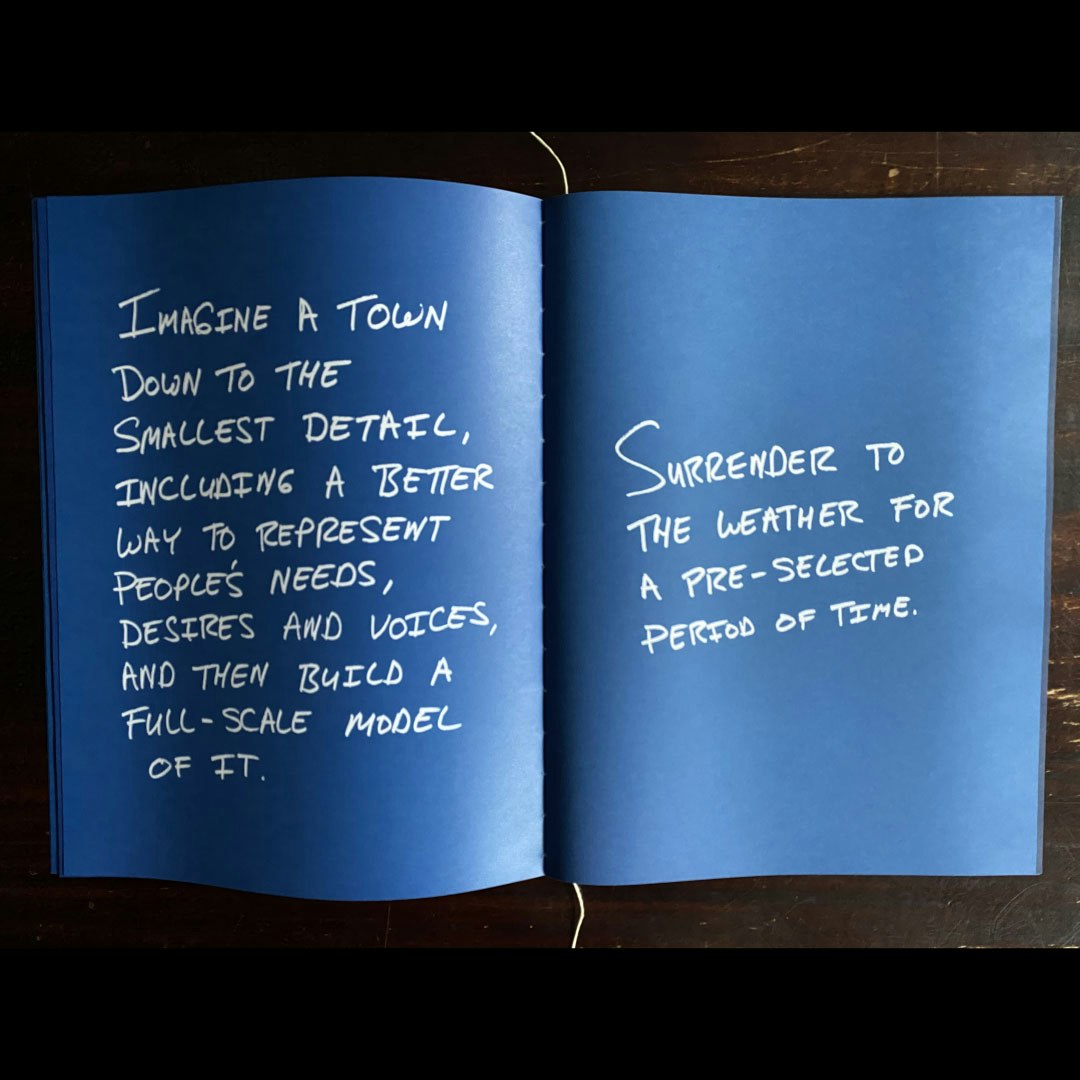 IMAGINE A TOWN
DOWN TO THE
SMALLEST DETAIL,
INCLUDING A BETTER
WAY TO REPRESENT
PEOPLE'S NEEDS,
DESIRES AND VOICES,
AND THEN BUILD A
FULL-SCALE MODEL
OF IT.
SURRENDER TO
THE WEATHER FOR
A PRE-SELECTED
PERIOD OF TIME.